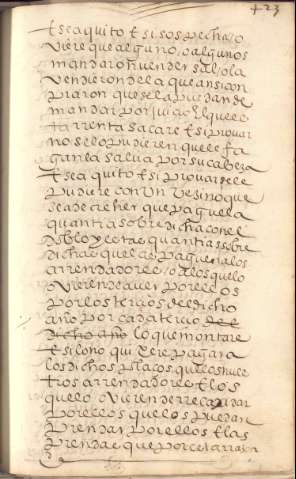 + 23
E sea quito E si sospecha o
viere que alguno o algunos
mandaron vender sal o la
vendieron de la que ansi con
praron que se la puedan de
mandar por juizio El que es
ta rrenta sacare E si provar
no selo pudieren que le fa
gan la salva por su cabeza
E sea quito E si provar sele
pudiere con un vesino que
sea de creher que pague la
quantia sobre dicha con el
doblo y estas quantias sobre
dichas que las paguen a los
arrendadores o a los que lo
ovieren de aver por ellos
por los tercios del dicho
año por cada tercio del
dicho año lo que montare
E si lo no quisiere pagar a
los dichos plazos que los nues
tros arrendadores E los
que lo ovieren de rrecaudar
por ellos que los puedan
prendar por ellos E las
prendas que por esta rrazon